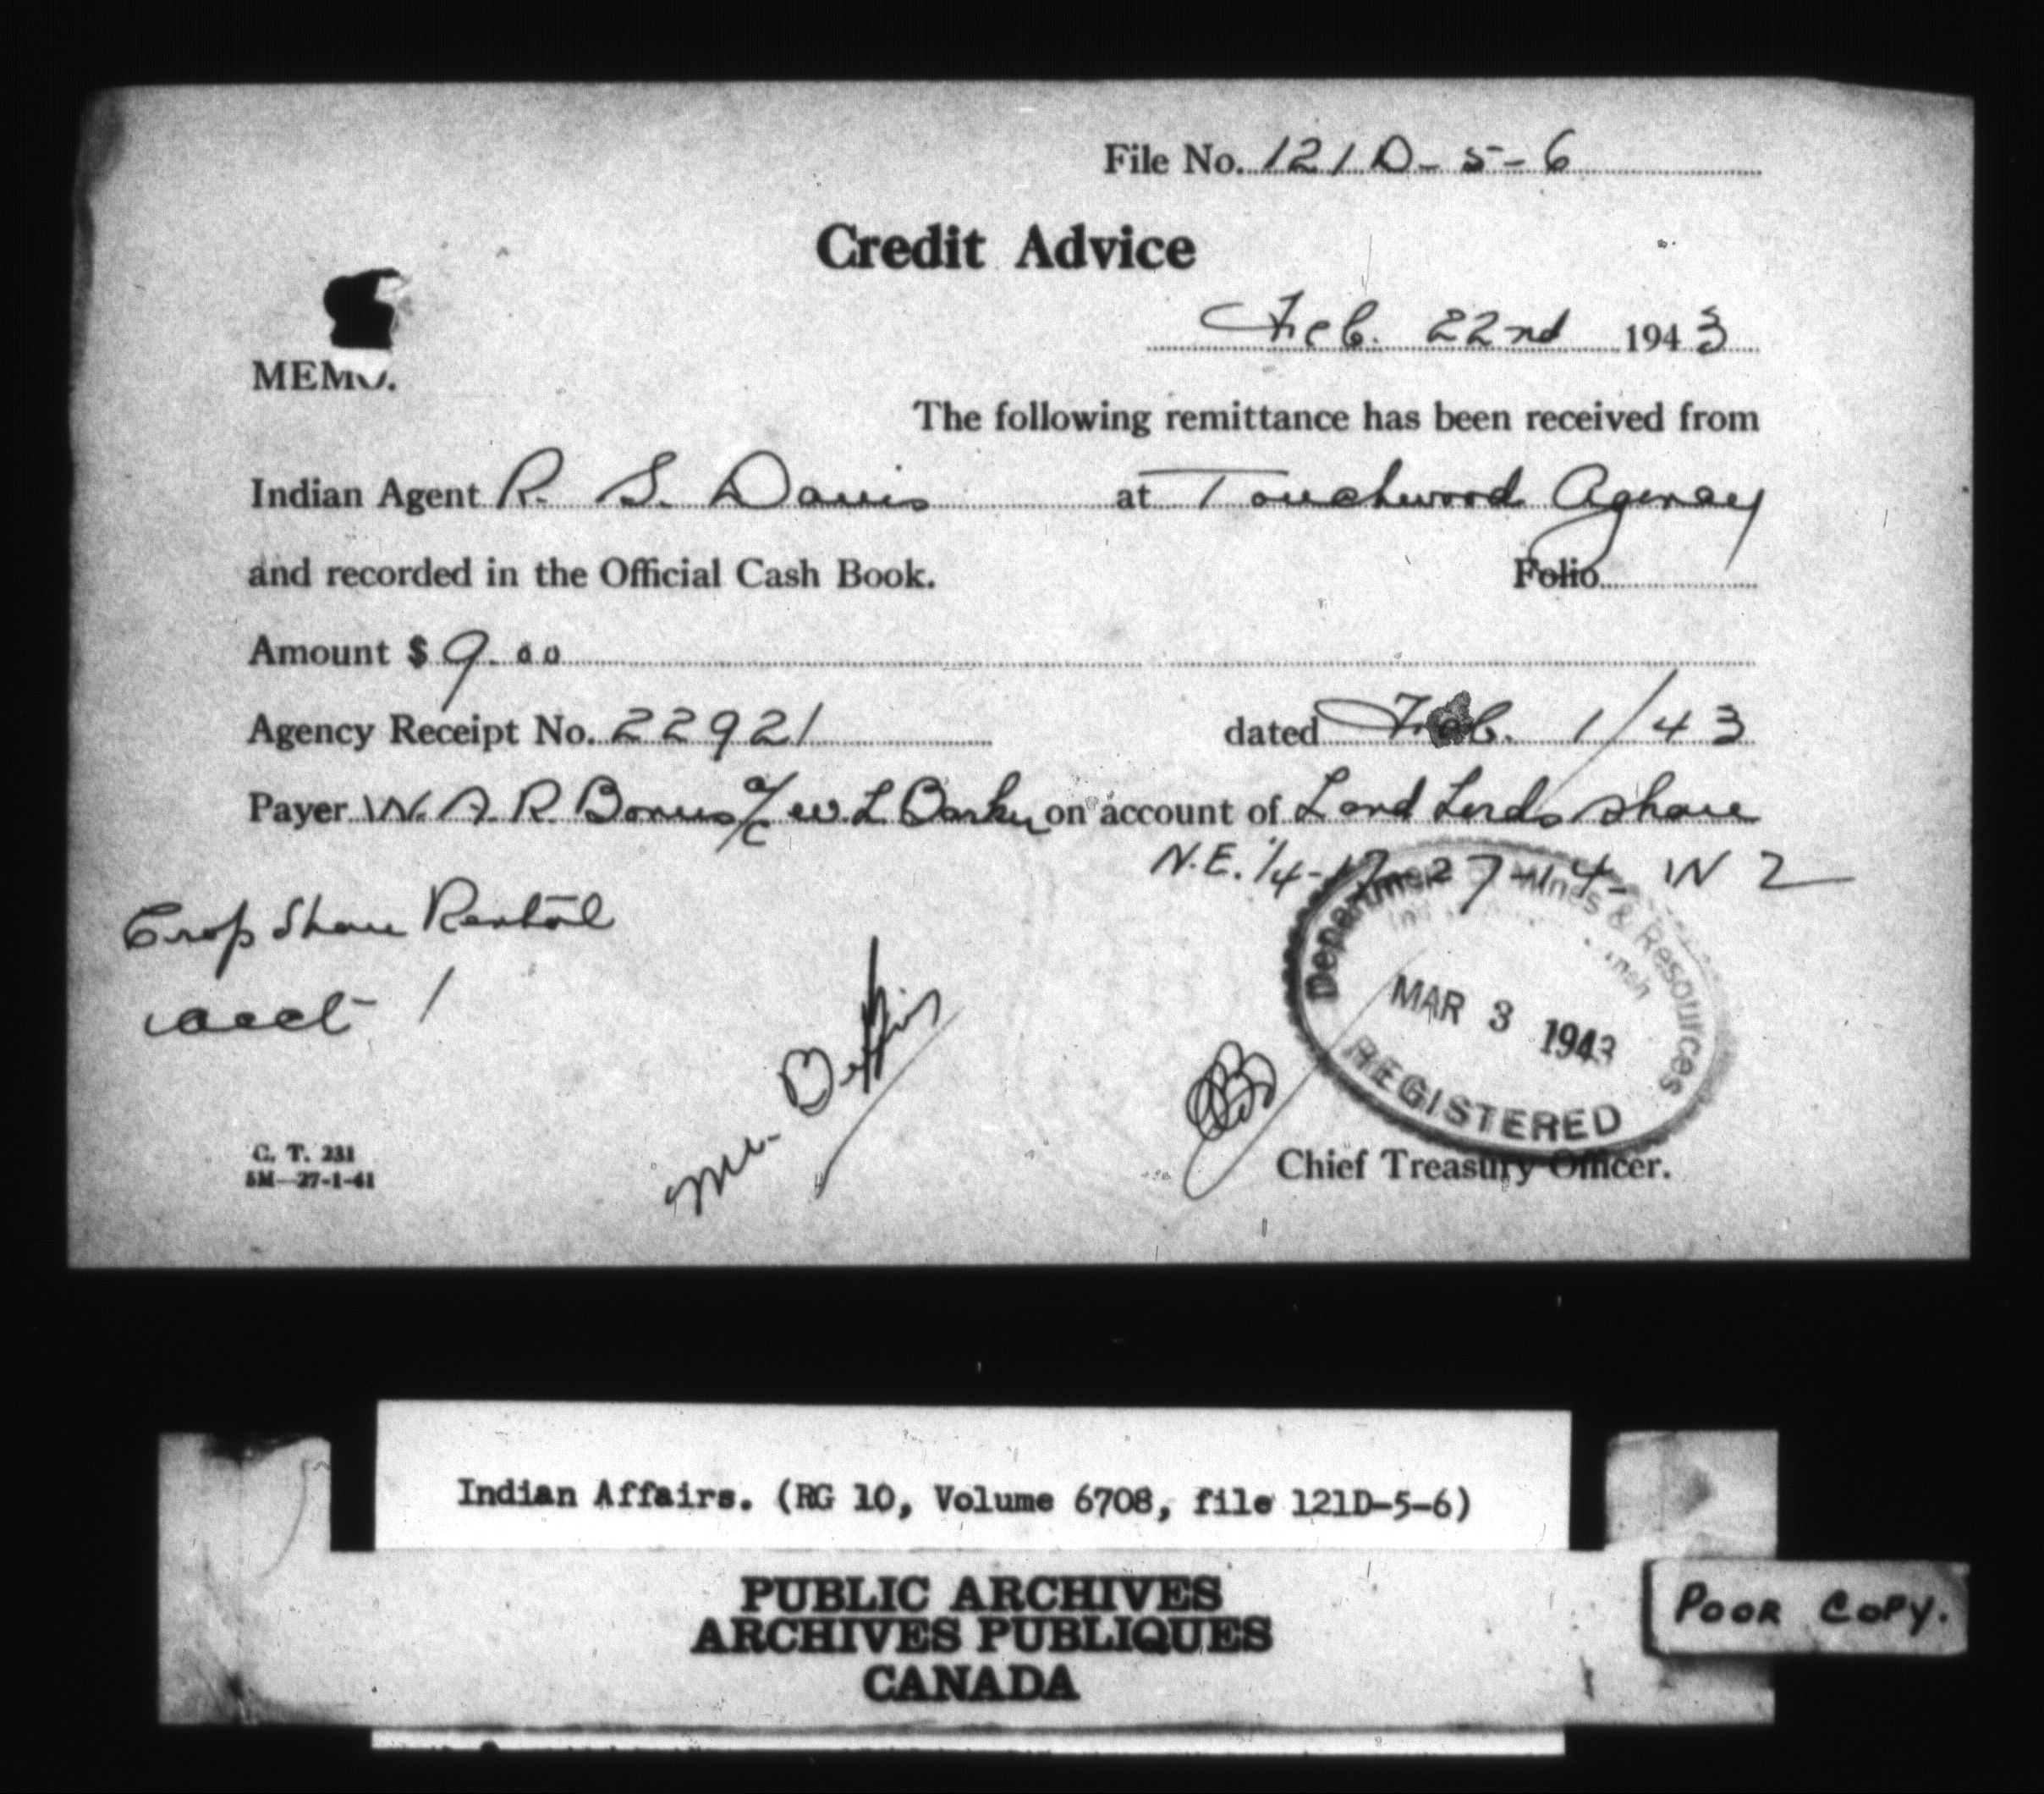 File No. 121D-5-6
Credit Advice
Feb. 22nd 1943
MEMO.
The following remittance has been received from
Indian Agent R. S. Davis at Touchwood Agency
and recorded in the Official Cash Book. Folio
Amount $ 9.00
Agency Receipt No. 22921 dated Feb. 1/43
Payer W. A. R. Bonus a/c W. L. Barker on account of Land Lords share
N.E. 1/4-17-27-14-W2
Crop Share Rental
acct 1
Department Mines & Resources
MAR 3 1943
REGISTERED
Mr.
Chief Treasury Officer.
C. T. 231
5M-27-1-41
Indian Affairs. (RG 10, Volume 6708, file 121D-5-6)
PUBLIC ARCHIVES
ARCHIVES PUBLIQUES
CANADA
POOR COPY.